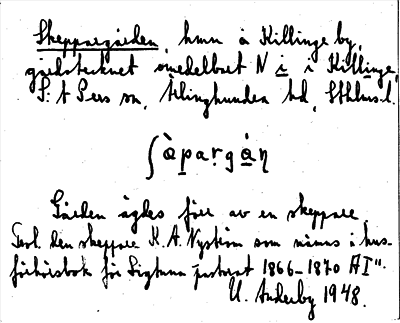 Skeppargården, hmn å Killinge by,
gårdstecknet omedelbart N i i Killinge,
S:t Pers sn, Ärlinghundra hd, Sthlms l.
ʃàpargán
Gården ägdes förr av en skeppare,
Trol. den skeppare K. A. Nyström som nämns i hus-
förhörsbok för Sigtuna pastorat 1866–1870 AI".
U. Anderby 1948.